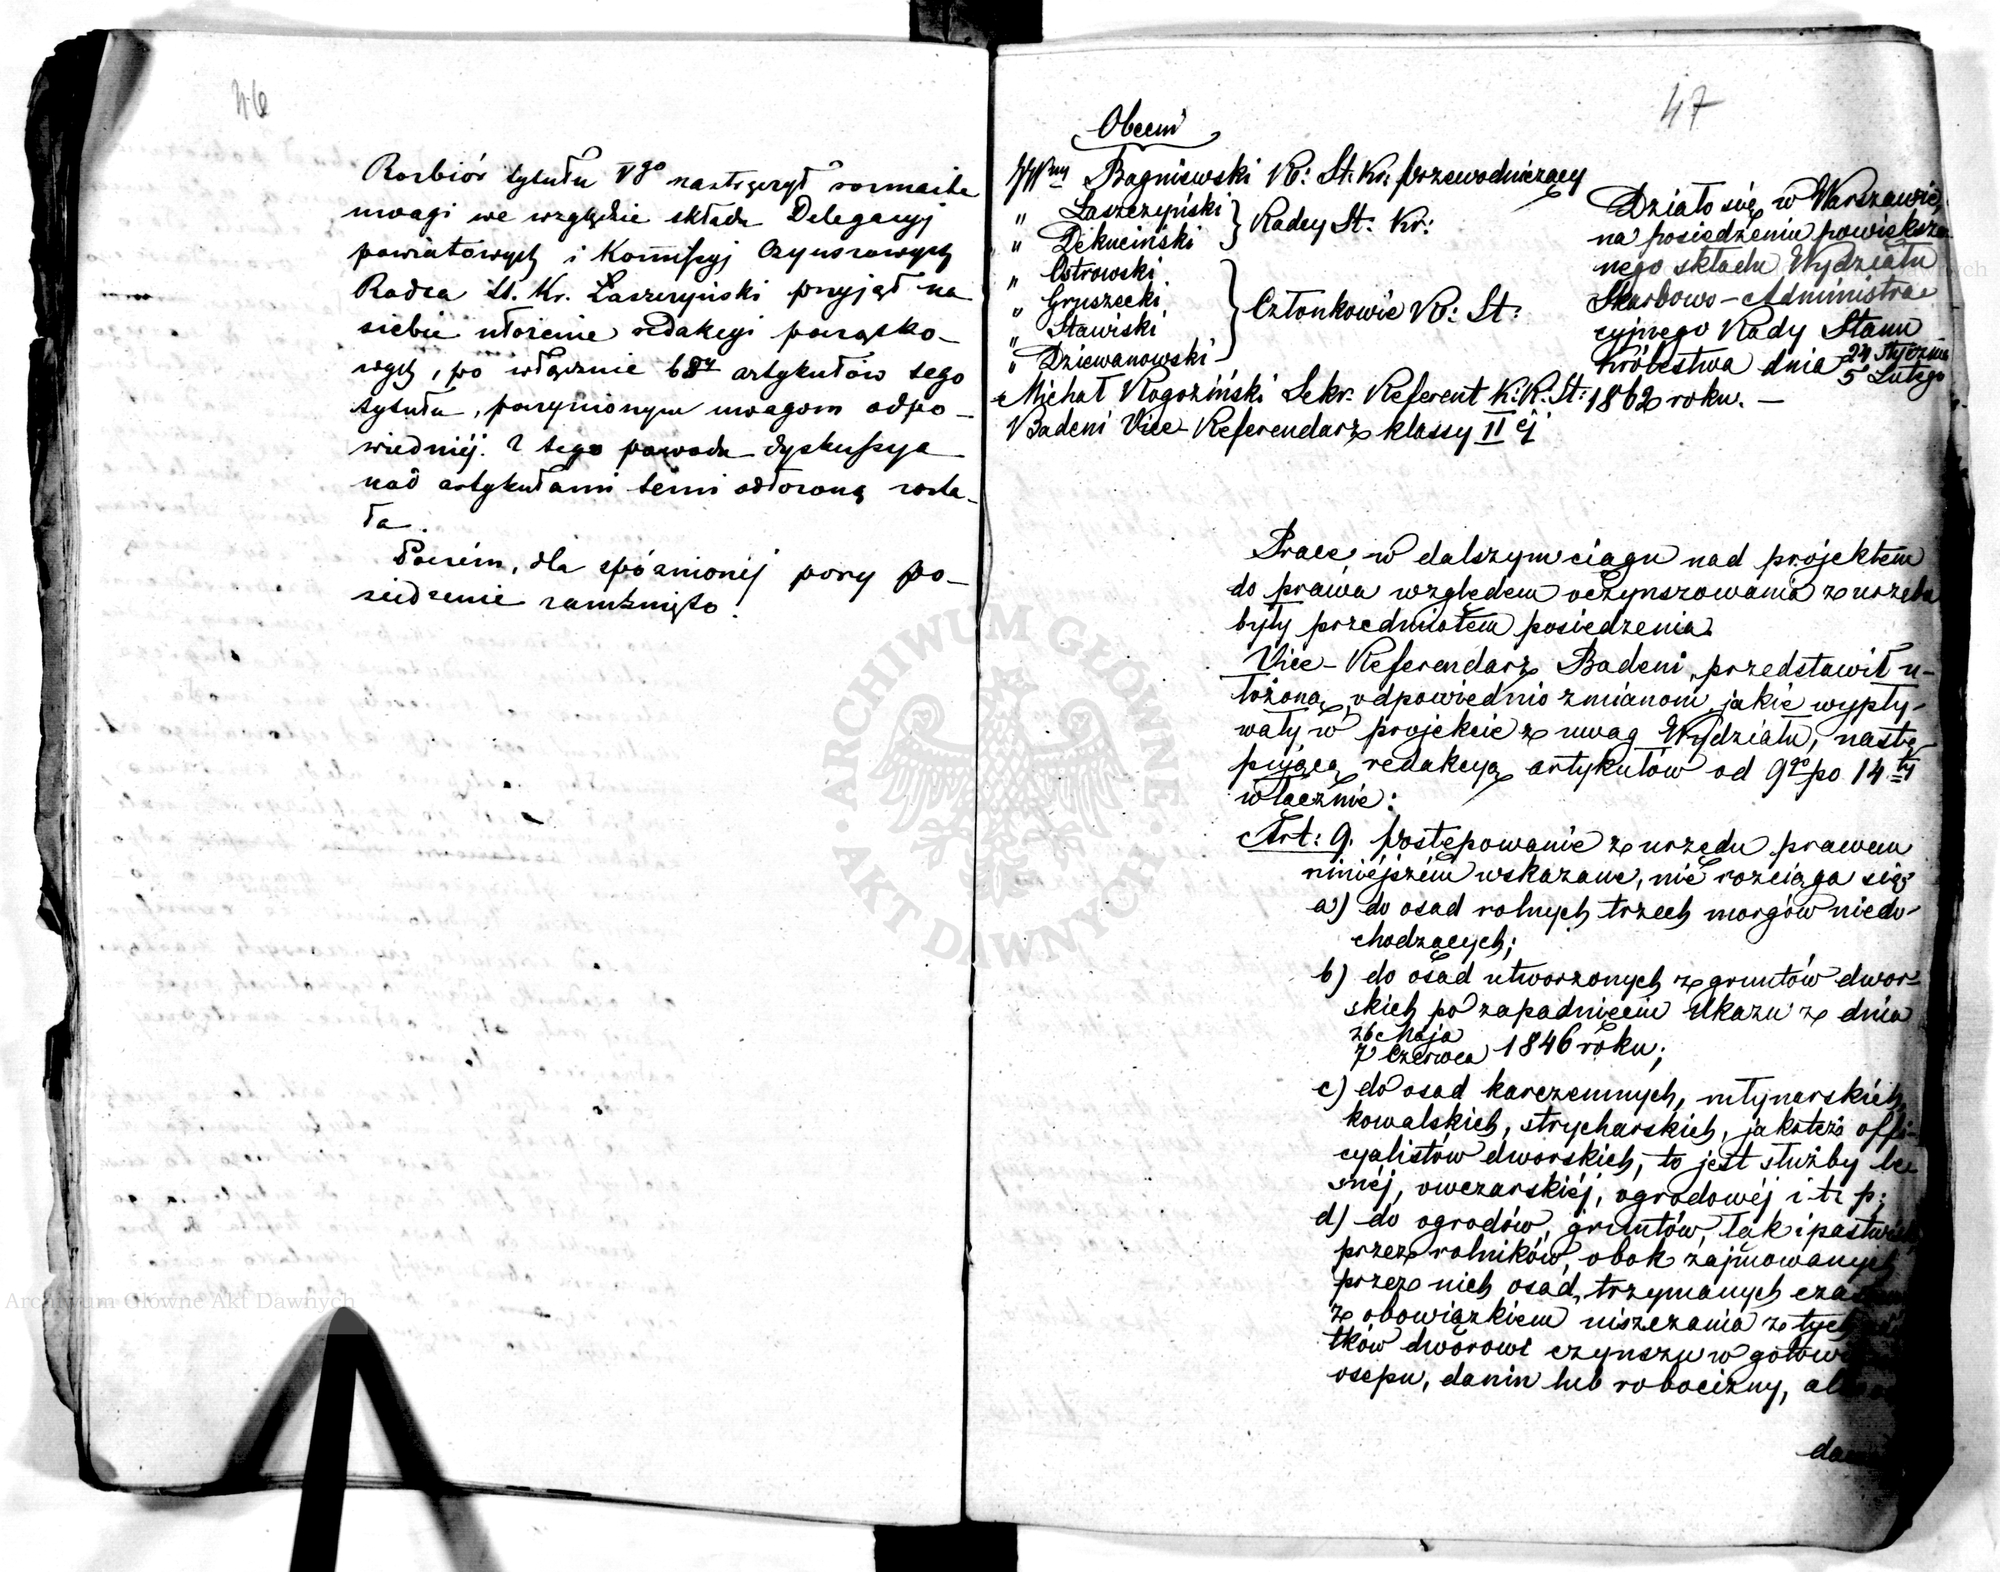 46
Rozbiór tytułu Vgo nastręczył rozmaite
uwagi we względzie składu Delegacyj
powiatowych i Kommissyj Czynszowych
Radca St. Kr. Łaszczyński przyjął na
siebie ułożenie redakcyi począsko-
wych, po włącznie 68y artykułów tego
tytułu, poczynionym uwagom odpo-
wiedniéj. Z tego powodu dyskussya
nad artykułami temi odłożoną zosta-
ła.
Poczém, dla spóźnionéj pory po-
siedzenie zamknięto.
47
Obecni
JWny Bagniewski R: St: Kr: przewodniczący
" Łaszczyński
" Dekuciński
Radcy St: Kr:
" Ostrowski
" Gruszecki
" Stawiski
" Dziewanowski
Członkowie R: St:
Michał Rogoziński Sekr. Referent K.R.St:
Badeni Vice-Referendarz klassy IIéj
Działo się w Warszawie,
na posiedzeniu powiększo-
nego składu Wydziału
Skarbowo-Administra-
cyjnego Rady Stanu
Królestwa dnia 24 Stycznia
5 Lutego
1862 roku. —
Prace w dalszym ciągu nad projektem
do prawa względem oczynszowania z urzędu
były przedmiotem posiedzenia.
Vice-Referendarz Badeni, przedstawił u-
łożoną odpowiednio zmianom, jakie wypły-
wały w projekcie z uwag Wydziału, nastę-
pującą redakcyą artykułów od 9go po 14ty
włącznie:
Art: 9. Postępowanie z urzędu prawem
niniéjszém wskazane, nie rozciąga się:
a) do osad rolnych trzech morgów niedo-
chodzących;
b) do osad utworzonych z gruntów dwor-
skich po zapadnięciu Ukazu z dnia
26 Maja
7 Czerwca 1846 roku;
c) do osad karczemnych, młynarskich,
kowalskich, strycharskich, jakoteż offi-
cyalistów dworskich, to jest służby le-
śnéj, owczarskiéj, ogrodowéj i t. p;
d) do ogrodów, gruntów, łąk i pastwisk
przez rolników, obok zajmowanych
przez nich osad, trzymanych
z obowiązkiem uiszczania z tych
tków dworowi czynszu w
osepu, danin lub robocizny,
ARCHIWUM GŁÓWNE · AKT DAWNYCH ·
Archiwum Główne Akt Dawnych